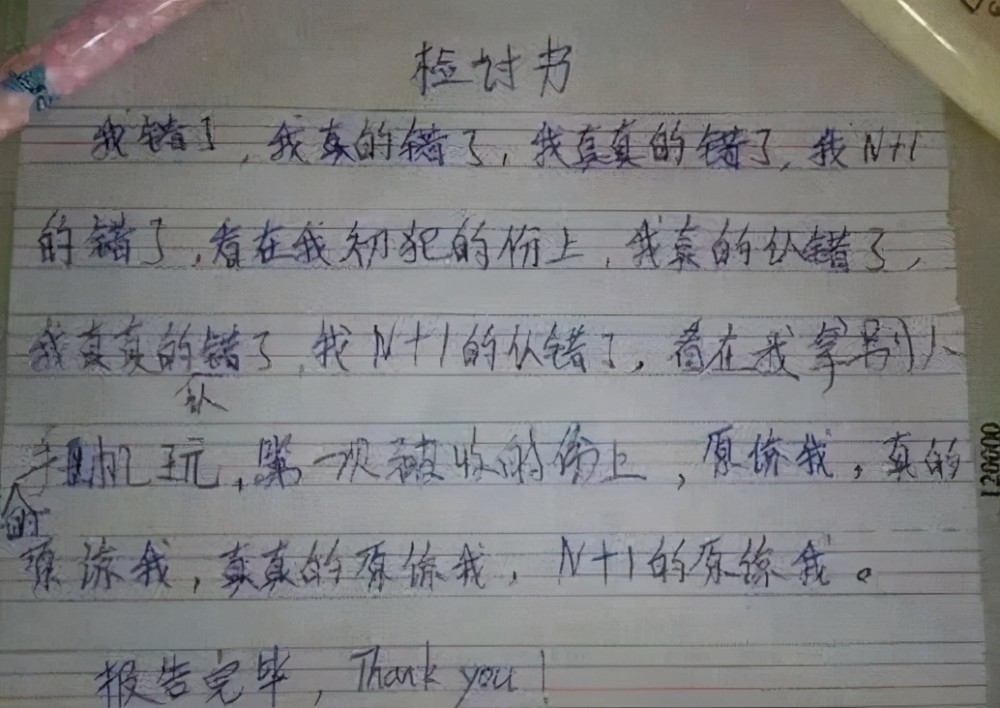 检讨书
我错了,我真的错了,我真真的错了,我N+1
的错了,看在我初犯的份上,我真的认错了,
我真真的认错了,我N+1的认错了,看在我拿别人
的手机玩,第一次被收的份上,原谅我,真的
原谅我,真真的原谅我,N+1的原谅我。
报告完毕,Thank you!
120000